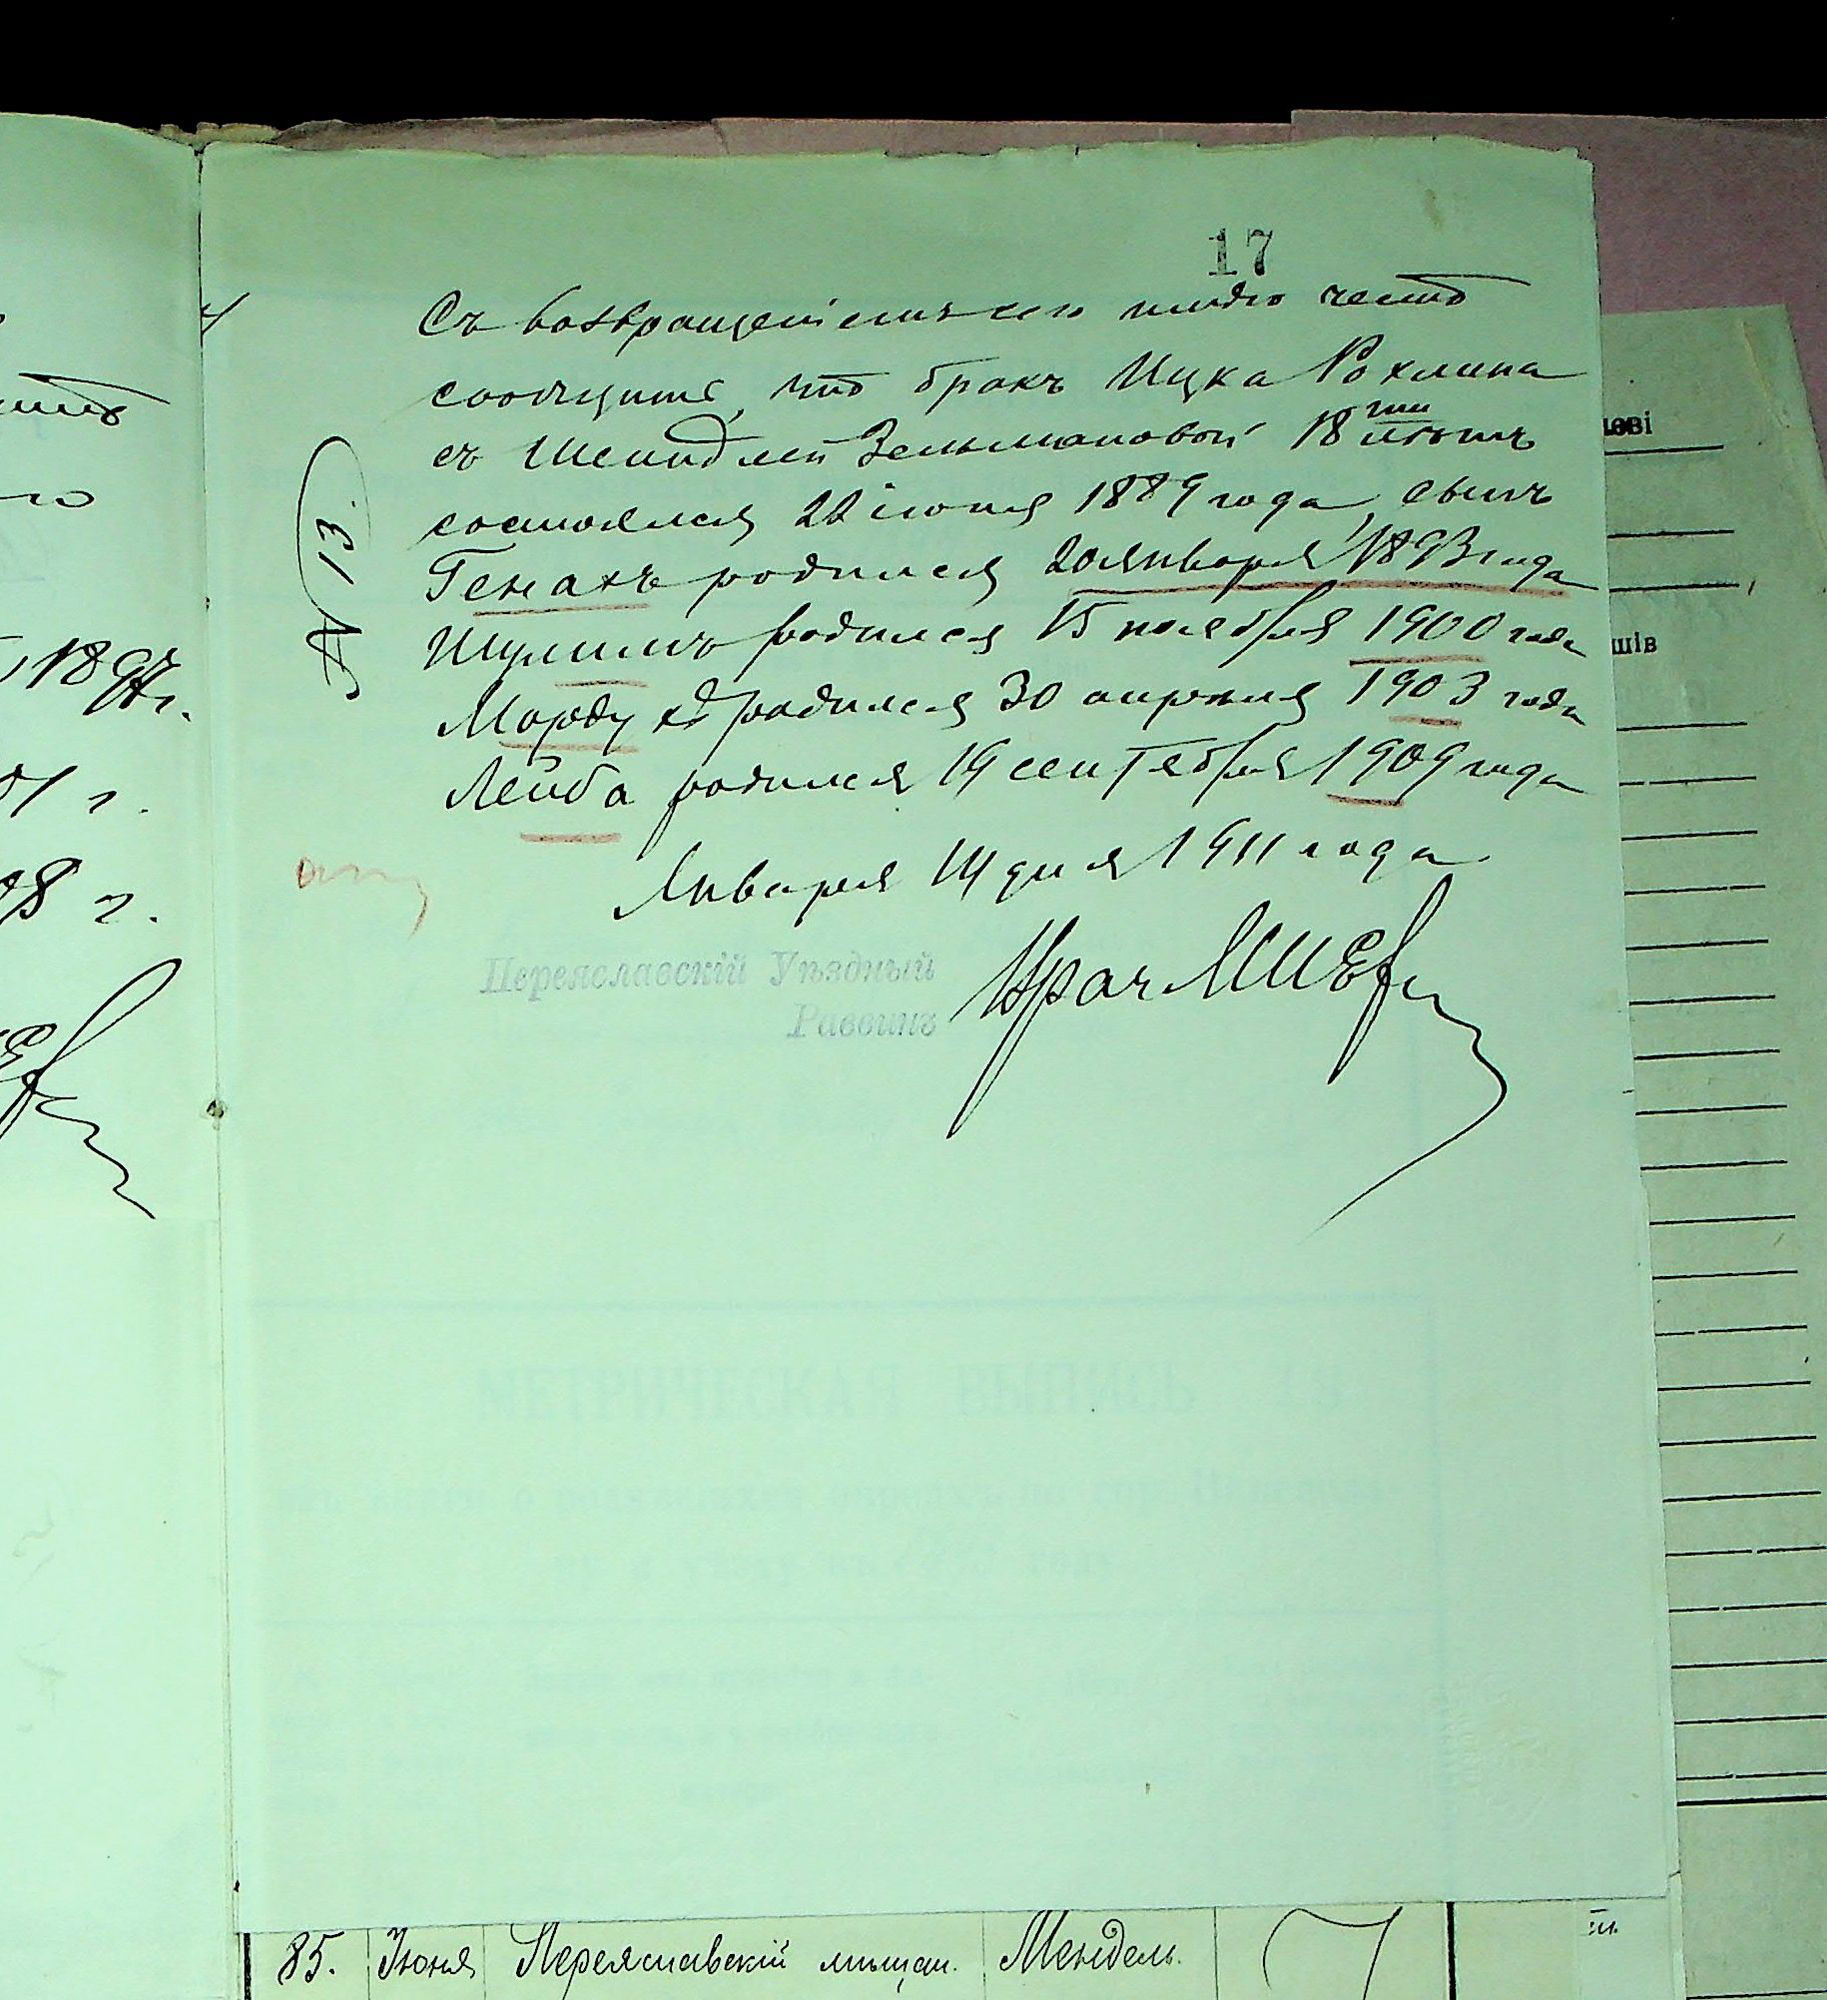 17
Съ возвращеніемъ сего имѣю честь
сообщить, что бракъ Ицка Рохлина
съ Шейндлей Зельмановой 18ти лѣтъ
состоялся 22 іюня 1889 года, сынъ
Генахъ родился 20 января 1893 года
Шулимъ родился 15 ноября 1900 года
Мордух родился 30 апрѣля 1903 года
Лейба родился 19 сентября 1909 года
Января 14 дня 1911 года
№ 13.
Переяславскій Уѣздный
Раввинъ
Врач
1897 г.
1 г.
8 г.
МЕТРИЧЕСКАЯ ВЫПИСЬ
85. Іюня Переяславскій мѣщан. Мендель.